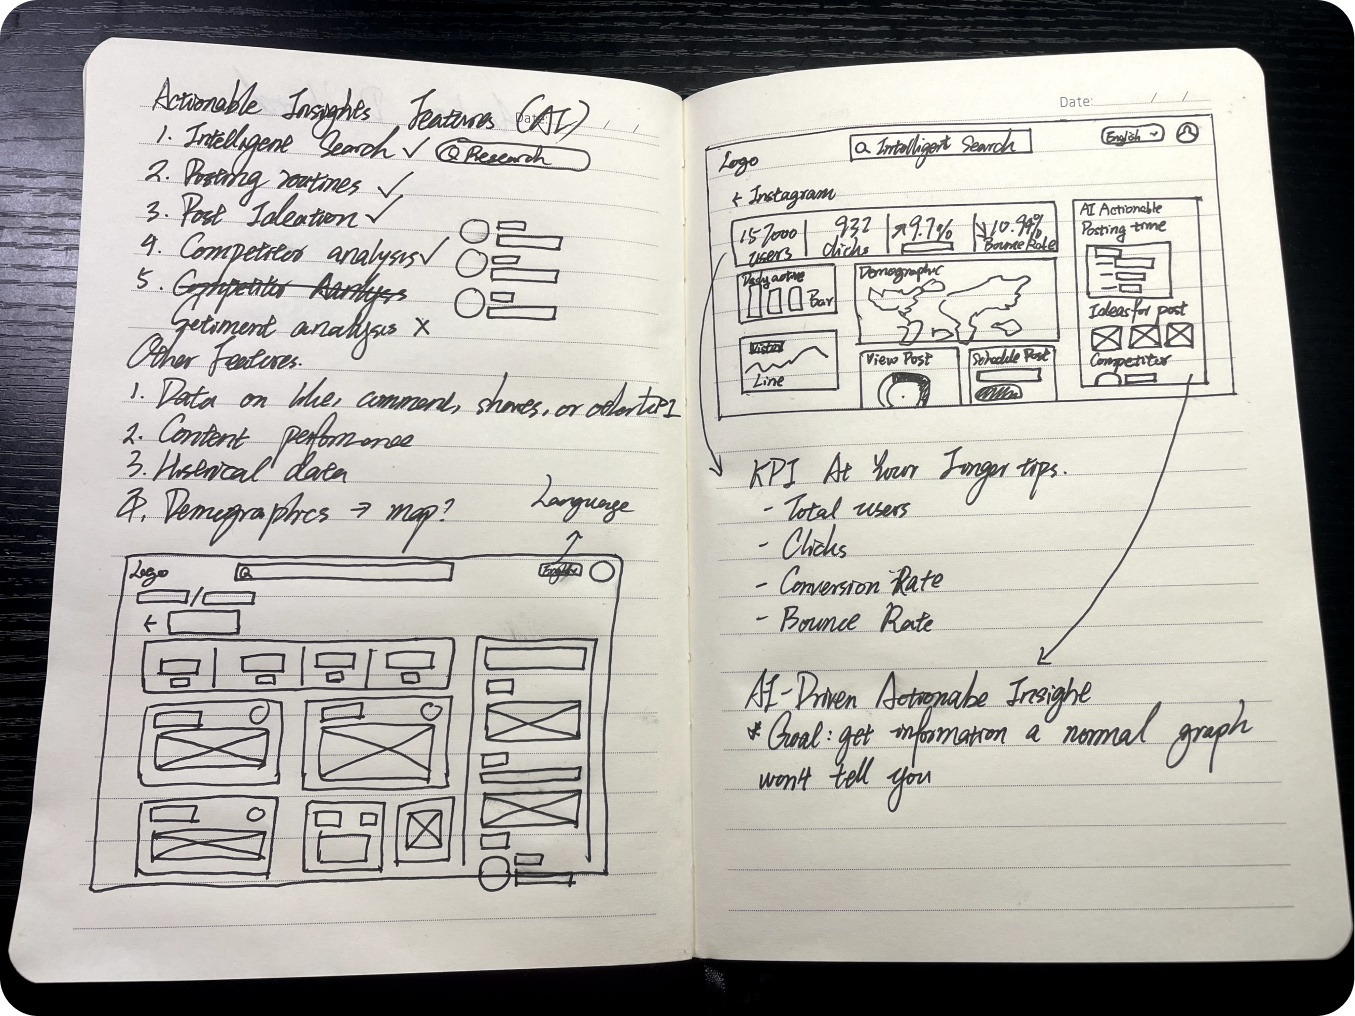 Actionable Insights Features (AI)
Date: / /
1. Intelligent Search ✓
Research
2. Posting routines ✓
3. Post Ideation ✓
4. Competitor analysis ✓
5. Competitor Analysis
Setiment analysis ×
Other Features.
1. Data on like, comment, shares, or other KPI
2. Content performance
3. Historical data
4. Demographics → map?
Language
Logo
English
/
←
Date: / /
Logo
Intelligent Search
English
← Instagram
157000
users
932
Clicks
↗9.7%
↘10.94%
Bounce Rate
Daily active
Bar
Demographic
Visitor
Line
View Post
Schedule Post
AI Actionable
Posting time
Ideas for post
Competitor
KPI At Your finger tips.
- Total users
- Clicks
- Conversion Rate
- Bounce Rate
AI-Driven Actionabe Insight
* Goal: get information a normal graph
won't tell you